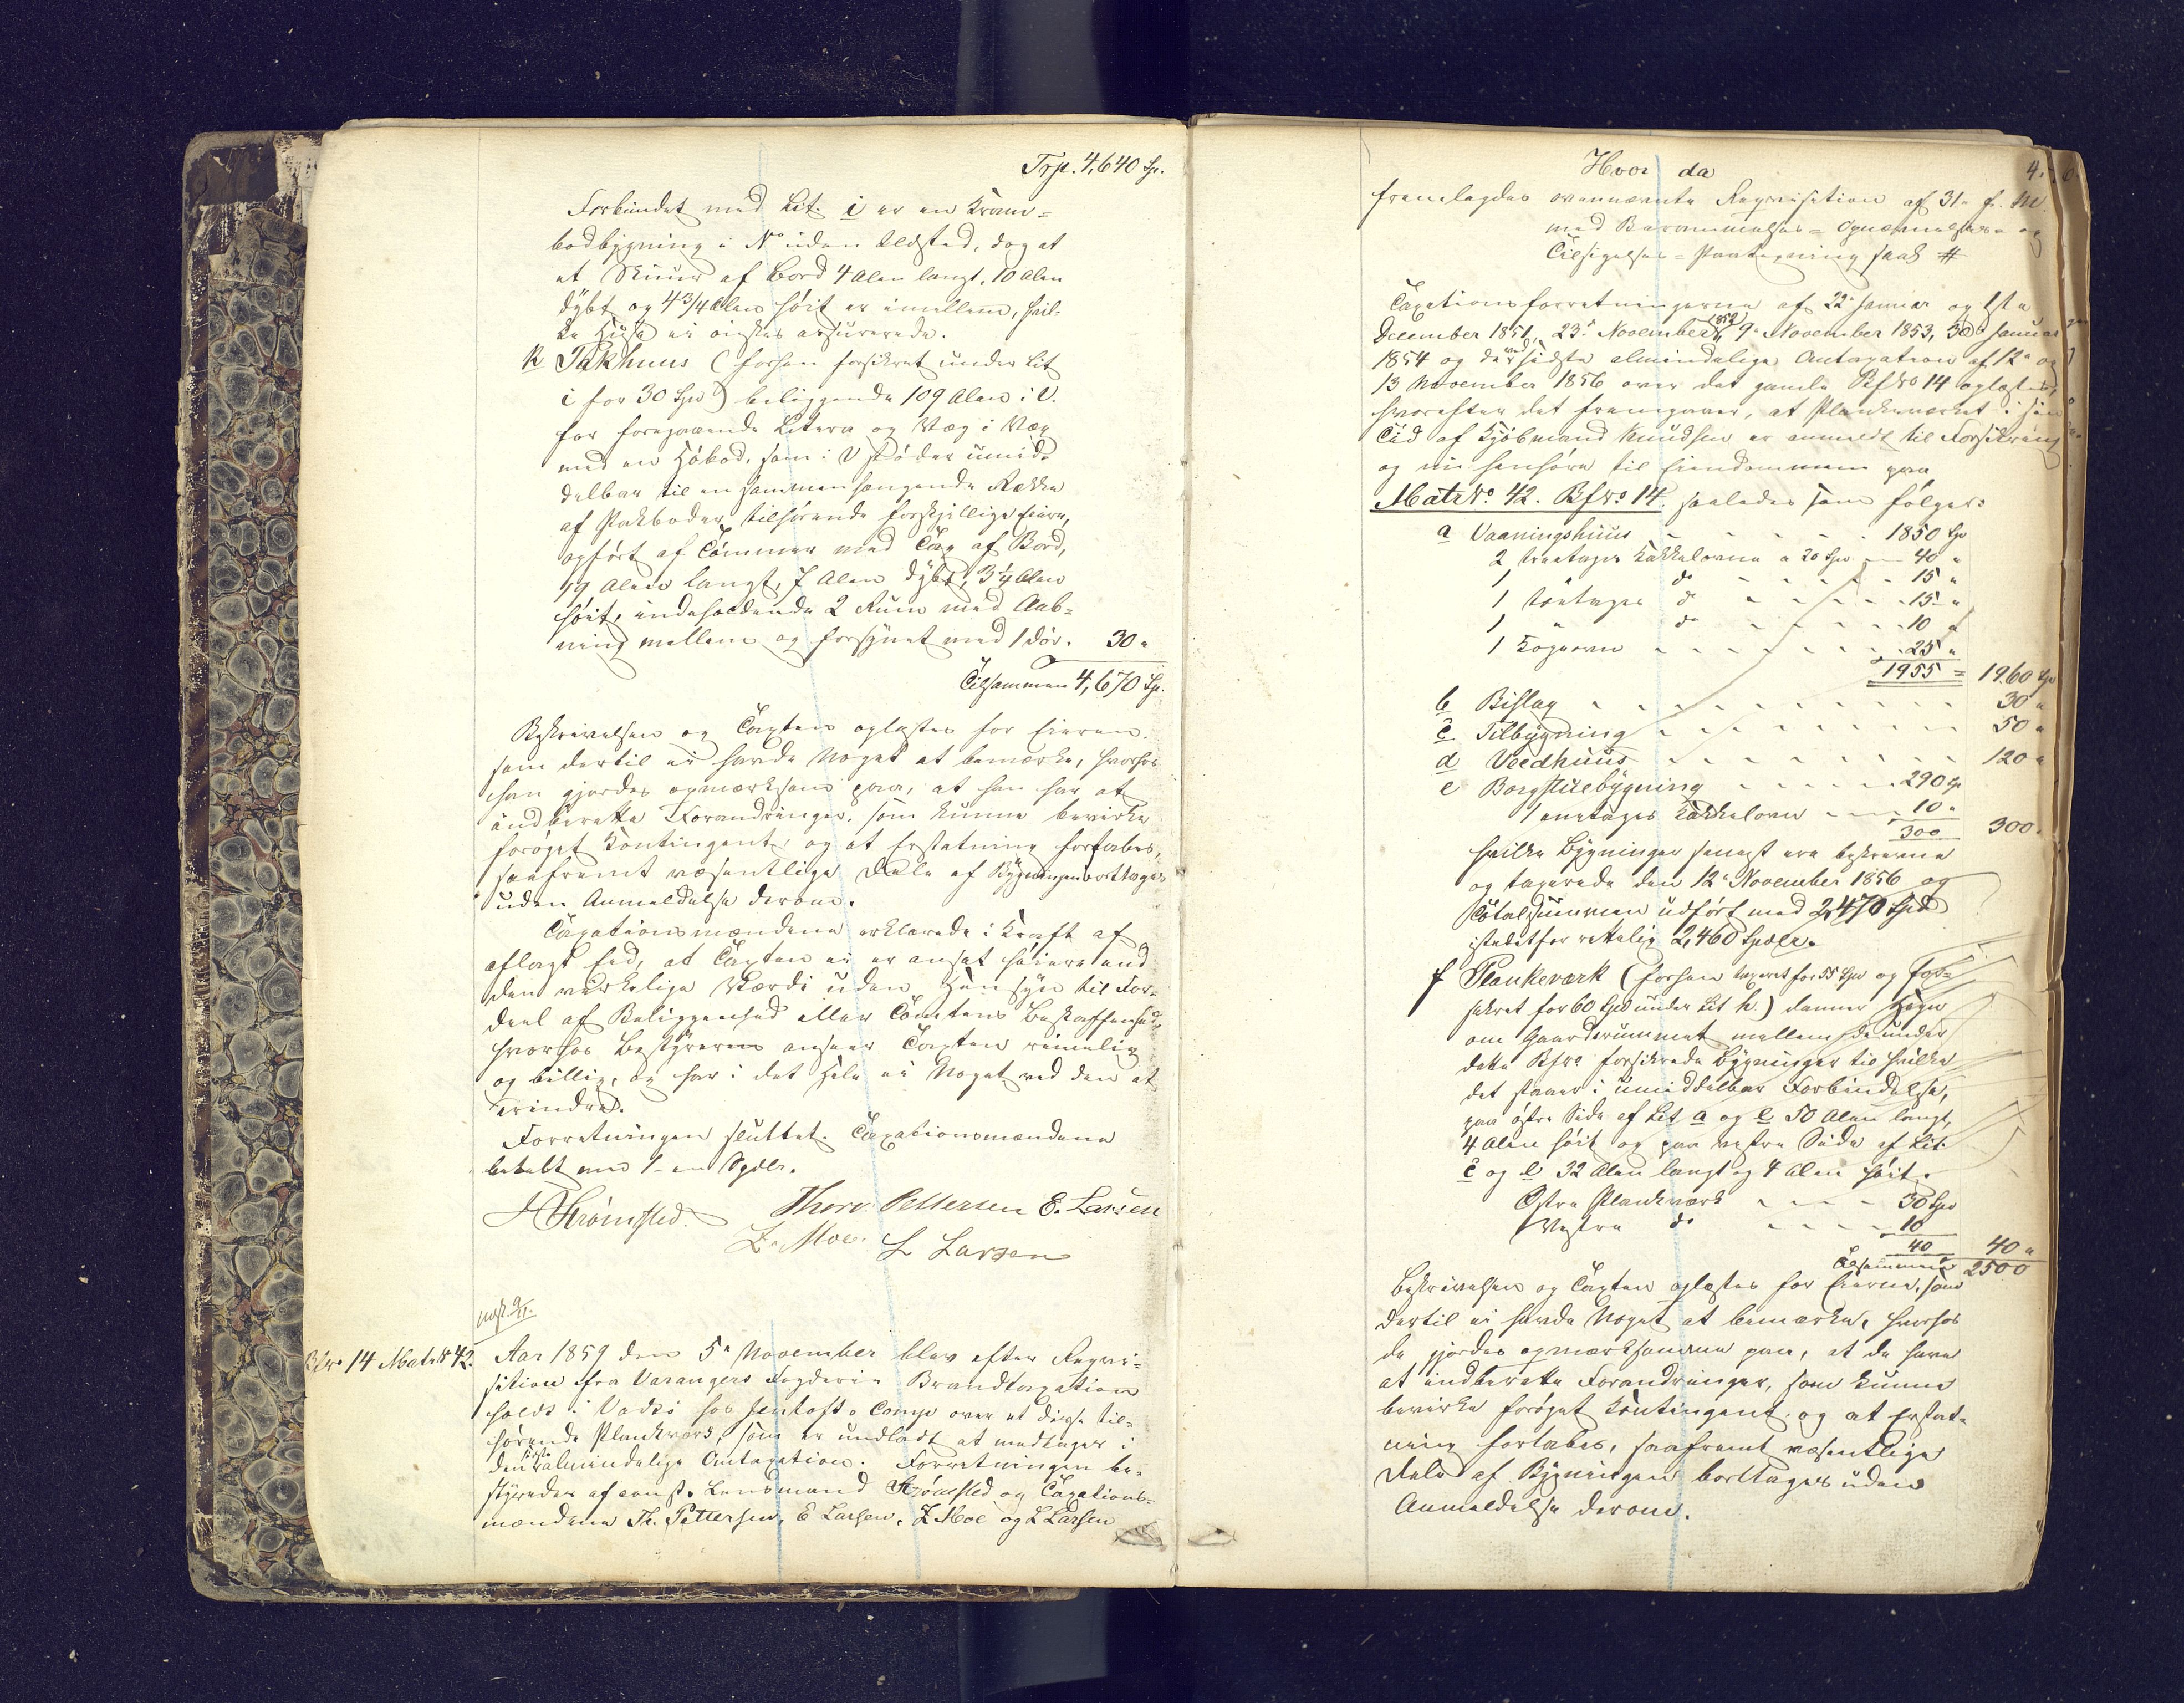 Trp. 4,640 Sp.
Forbundet med Lit. i er en Kram=
bodbygning i N. uden Ildsted, dog at
et Skuur af Bord 4 Alen langt, 10 Alen
dybt og 4 3/4 Alen høit er imellem, hvil-
ke Huse ei ønskes assurerede.
k Pakhuus (forhen forsikret under Lit
i for 30 Spd) beliggende 109 Alen i V.
for foregaaende Litera og Væg i Væg
med en Søbod, som i V støder umid-
delbar til en sammenhængende Række
af Pakboder tilhørende forskjellige Eiere,
opført af Tømmer med Tag af Bord,
19 Alen langt, 7 Alen dybt, 3 1/4 Alen
høit, indeholdende 2 Rum med Aab-
ning mellem og forsynet med 1 Dør. 30 "
Tilsammen 4,670 Sp.
Beskrivelsen og Taxten oplæstes for Eieren.
som dertil ei havde Noget at bemærke, hvorhos
han gjordes opmærksom paa, at han har at
indberette Forandringer, som kunne bevirke
forøget Kontingent, og at Erstatning fortabes,
saafremt væsentlige Dele af Bygningen borttages
uden Anmeldelse derom.
Taxationsmændene erklærede i Kraft af
aflagt Eed, at Taxten ei er ansat høiere end
den virkelige Værdi uden Hensyn til For-
deel af Beliggenhed eller Tomtens Beskaffenhed,
hvorhos Bestyreren anseer Taxten rimelig
og billig, og har i det Hele ei Noget ved den at
erindre.
Forretningen sluttet. Taxationsmændene
betalt med 1 - en Spdlr.
Strømsted. Thorv. Pettersen E. Larsen
Z. Moe. L Larsen
Bfno 14 Matr No 42. Aar 1859 den 5te November blev efter Reqvi-
sition fra Varangers Fogderie Brandtaxation
holdt i Vadsø hos Jentoft & Comp over et disse til-
hørende Plankværk, som er undladt at medtages i
den sidste almindelige Omtaxation. Forretningen be-
styredes af const. Lensmand Strømsted og Taxations-
mændene Th. Pettersen, E Larsen, Z Moe og L Larsen
4.
Hvor da
fremlagdes ovennævnte Reqvisition af 31te f. M.
med Berammelses- Opnævnelses- og
Tilsigelses- Paategning saal. #
Taxationsforretningerne af 22de Januar og 1ste
December 1851, 23de November 1852, 9de November 1853, 30te Januar
1854 og den ved sidste almindelige Omtaxation af 12te og
13 November 1856 over det gamle Bfno 14 oplæstes,
hvorefter det fremgaaer, at Plankeværket i sin
Tid af Kjøbmand Knudsen er anmeldt til Forsikring
og nu henhører til Eiendommen paa
Matr No. 42. Bfno. 14. saaledes som følger:
a Vaaningshuus 1850 Spd
2 treetages Kakkelovne a 20 Spd 40 "
1 " do 15 "
1 toetages do 15 "
1 " do 10 "
1 Kogeovn 25 "
1955 = 1960 Spd
b Bislag 30 "
c Tilbygning 50 "
d Veedhuus 120 "
e Borgstuebygning 290 Sp
1 enetages Kakkelovn 10 "
300 300 "
hvilke Bygninger senest ere beskrevne
og taxerede den 12te November 1856 og
Totalsummen udført med 2,470 Spd
istedetfor rettelig 2,460 Spdlr.
f Plankeværk (forhen taxeret for 55 Spd og for-
sikret for 60 Spd under Lit h.) danner Hegn
om Gaardsrummet mellem de under
dette Bfno forsikrede Bygninger til hvilke
det staaer i umiddelbar Forbindelse,
paa østre Side af Lit a og e 50 Alen langt,
4 Alen høit og paa vestre Side af Lit.
c og e 32 Alen langt og 4 Alen høit.
Østre Plankværk 30 Spd
Vestre do 10
40 40 "
Tilsammen 2500
Beskrivelsen og Taxten oplæstes for Eierne, som
dertil ei havde Noget at bemærke, hvorhos
de gjordes opmærksomme paa, at de have
at indberette Forandringer, som kunne
bevirke forøget Kontingent, og at Erstat-
ning fortabes, saafremt væsentlige
Dele af Bygningen borttages uden
Anmeldelse derom.